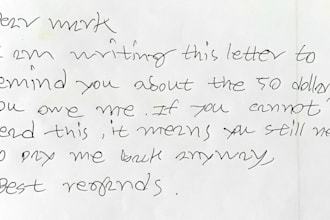 ear mark
I am writing this letter to
emind you about the 50 dollar
ou owe me. If you cannot
ead this, it means you still ne
o pay me back anyway,
Best regards.